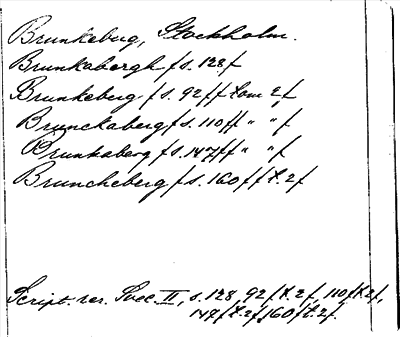 Brunkeberg, Stockholm.
Brunkabergh f s. 128 f
Brunkeberg f s. 92 f f tom 2 f
Brunckaberg f s. 110 ff " " f
Brunkaberg f s. 147 ff " " f
Bruncheberg f s. 160 f f t. 2 f
Script. rer. Svec. II, s. 128, 92 f t. 2 f, 110 f t. 2 f,
147 f t. 2 f, 160 f t. 2 f.